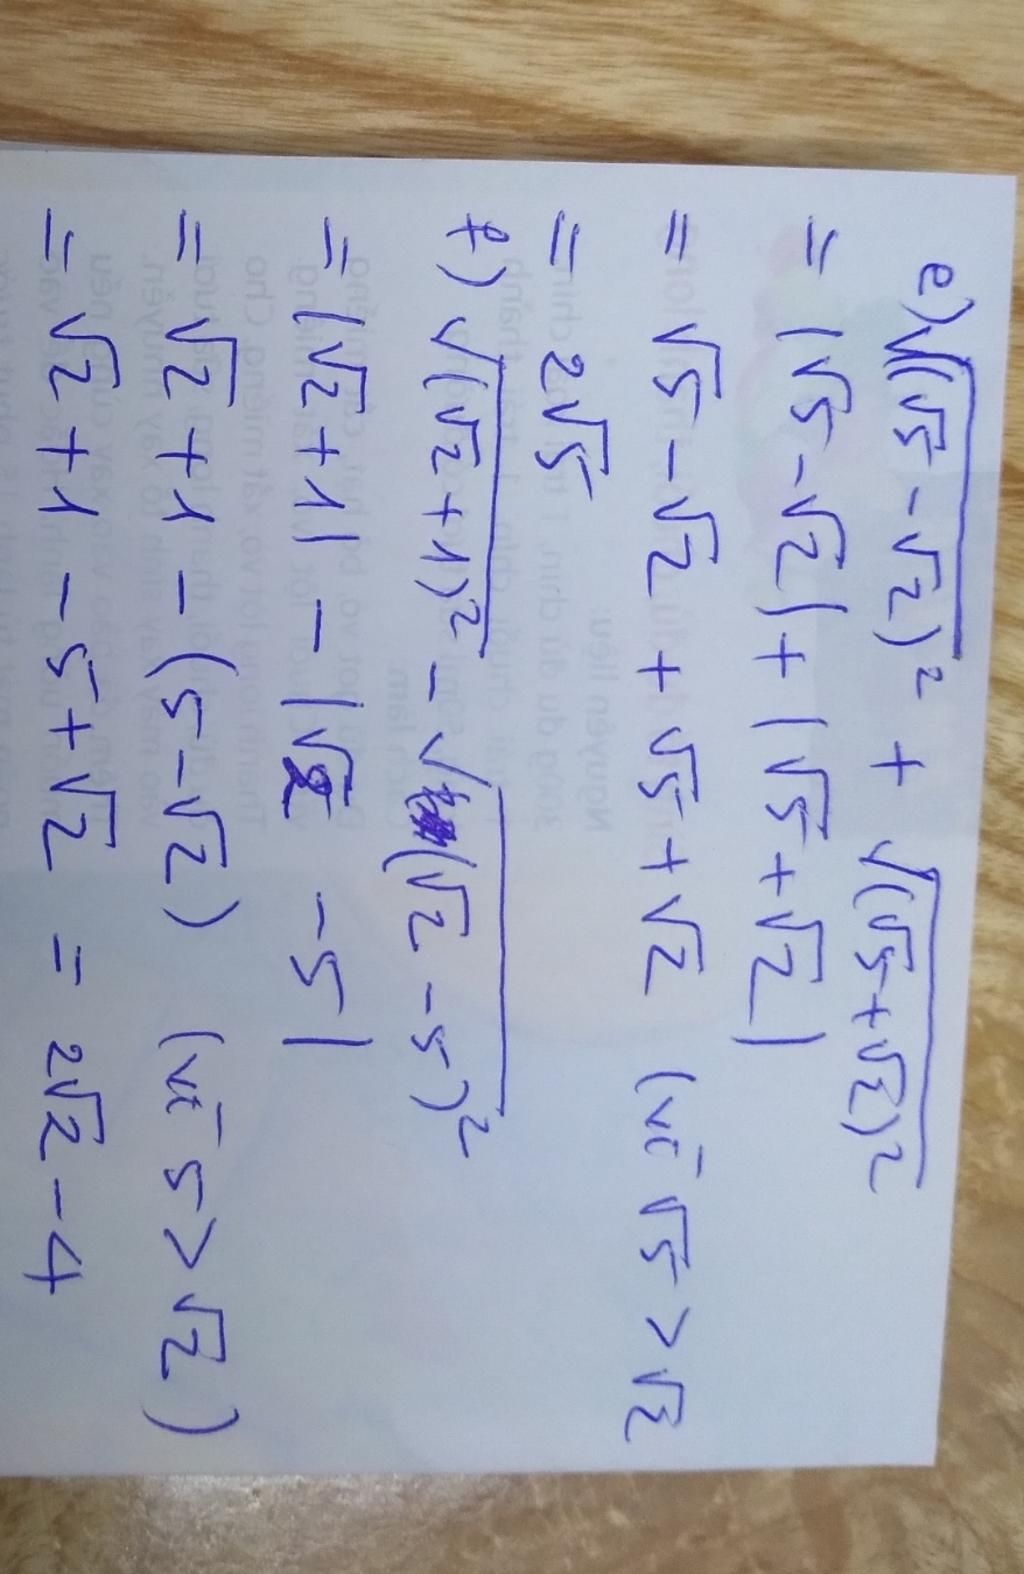 e) √(√5 - √2)² + √(√5 + √2)²
= |√5 - √2| + |√5 + √2|
= √5 - √2 + √5 + √2 (vì √5 > √2
= 2√5
f) √(√2 + 1)² - √(√2 - 5)²
= |√2 + 1| - |√2 - 5|
= √2 + 1 - (5 - √2) (vì 5 > √2)
= √2 + 1 - 5 + √2 = 2√2 - 4